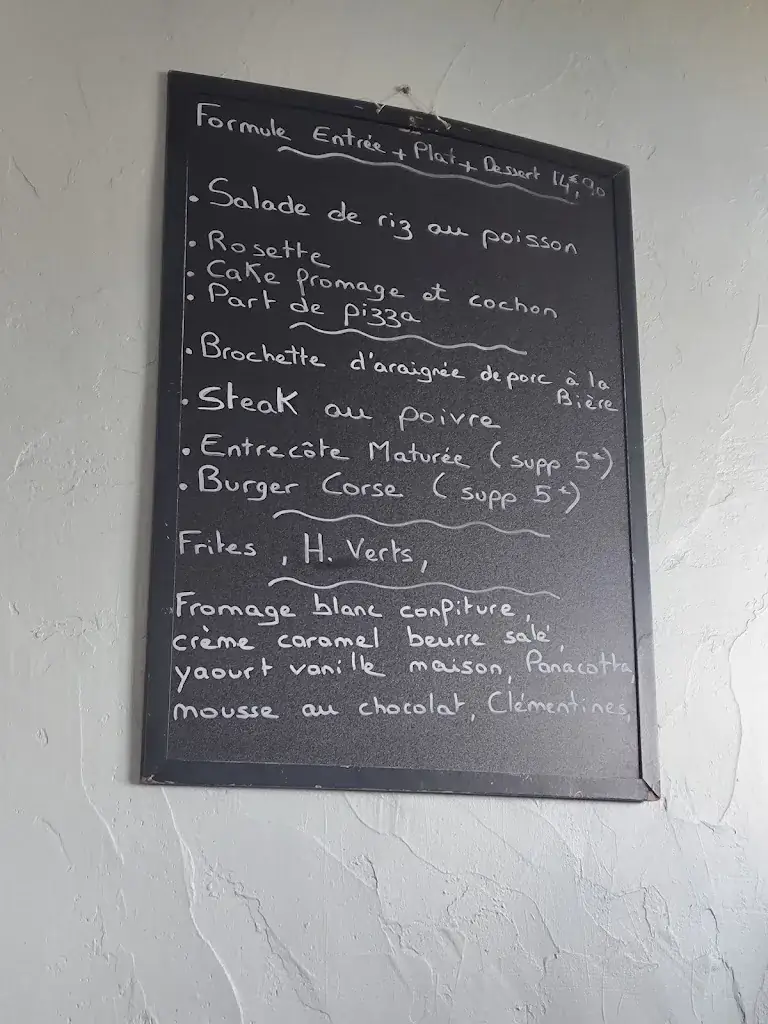 Formule Entrée + Plat + Dessert 14€,90
. Salade de riz au poisson
. Rosette
. Cake fromage et cochon
. Part de pizza
. Brochette d'araignée de porc à la
Bière
. Steak au poivre
. Entrecôte Maturée (supp 5€)
. Burger Corse (supp 5€)
Frites, H. Verts,
Fromage blanc confiture,
crème caramel beurre salé,
yaourt vanille maison, Panacotta,
mousse au chocolat, Clémentines,